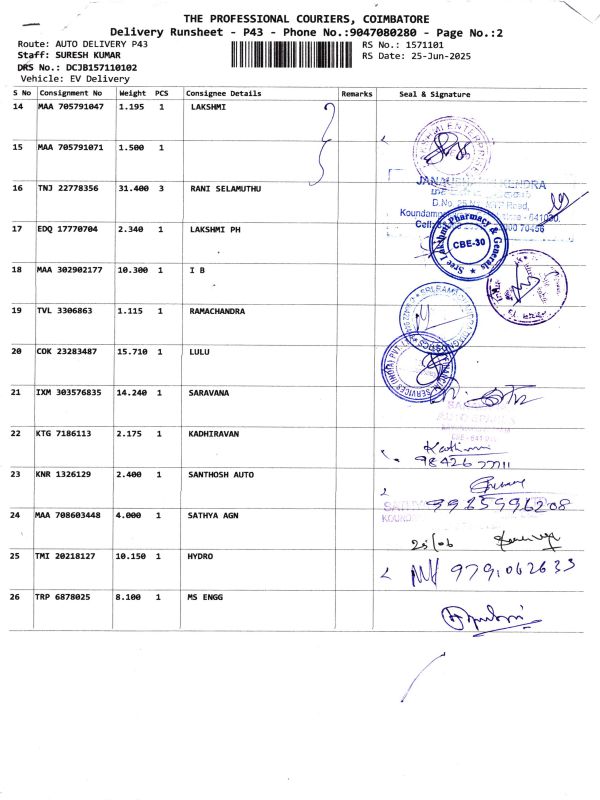 THE PROFESSIONAL COURIERS, COIMBATORE
Delivery Runsheet - P43 - Phone No.:9047080280 - Page No.:2
Route: AUTO DELIVERY P43
RS No.: 1571101
Staff: SURESH KUMAR
RS Date: 25-Jun-2025
DRS No.: DCJB157110102
Vehicle: EV Delivery
S No Consignment No Weight PCS Consignee Details Remarks Seal & Signature
14 MAA 705791047 1.195 1 LAKSHMI
15 MAA 705791071 1.500 1
16 TNJ 22778356 31.400 3 RANI SELAMUTHU
17 EDQ 17770704 2.340 1 LAKSHMI PH
Sree Lakshmi Pharmacy & Generals
CBE-30
18 MAA 302902177 10.300 1 I B
19 TVL 3306863 1.115 1 RAMACHANDRA
20 COK 23283487 15.710 1 LULU
21 IXM 303576835 14.240 1 SARAVANA
22 KTG 7186113 2.175 1 KADHIRAVAN
98426 77711
23 KNR 1326129 2.400 1 SANTHOSH AUTO
9985996208
24 MAA 708603448 4.000 1 SATHYA AGN
25/06
25 TMI 20218127 10.150 1 HYDRO
26 TRP 6878025 8.100 1 MS ENGG